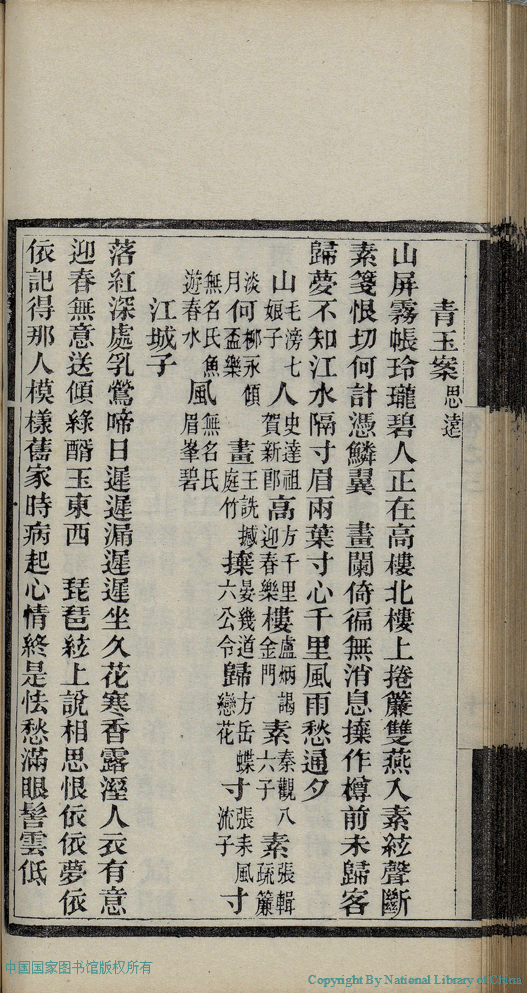 青玉案 思遠
山屏霧帳玲瓏碧人正在高樓北樓上捲簾雙燕入素絃聲斷
素箋恨切何計憑鱗翼　畫闌倚徧無消息擽作樽前未歸客
歸夢不知江水隔寸眉兩葉寸心千里風雨愁通夕
山毛滂七娘子人史達祖賀新郎高方千里迎春樂樓盧炳謁金門素秦觀八六子素張輯疏簾
淡月何柳永傾盃樂畫王詵撼庭竹擽晏幾道六公令歸方岳蝶戀花寸張耒風流子寸
無名氏魚遊春水風無名氏眉峯碧
江城子
落紅深處乳鶯啼日遲遲漏遲遲坐久花寒香露溼人衣有意
迎春無意送傾綠醑玉東西　琵琶絃上說相思恨依依夢依
依記得那人模樣舊家時病起心情終是怯愁滿眼髻雲低
中国国家图书馆版权所有
Copyright By National Library of China